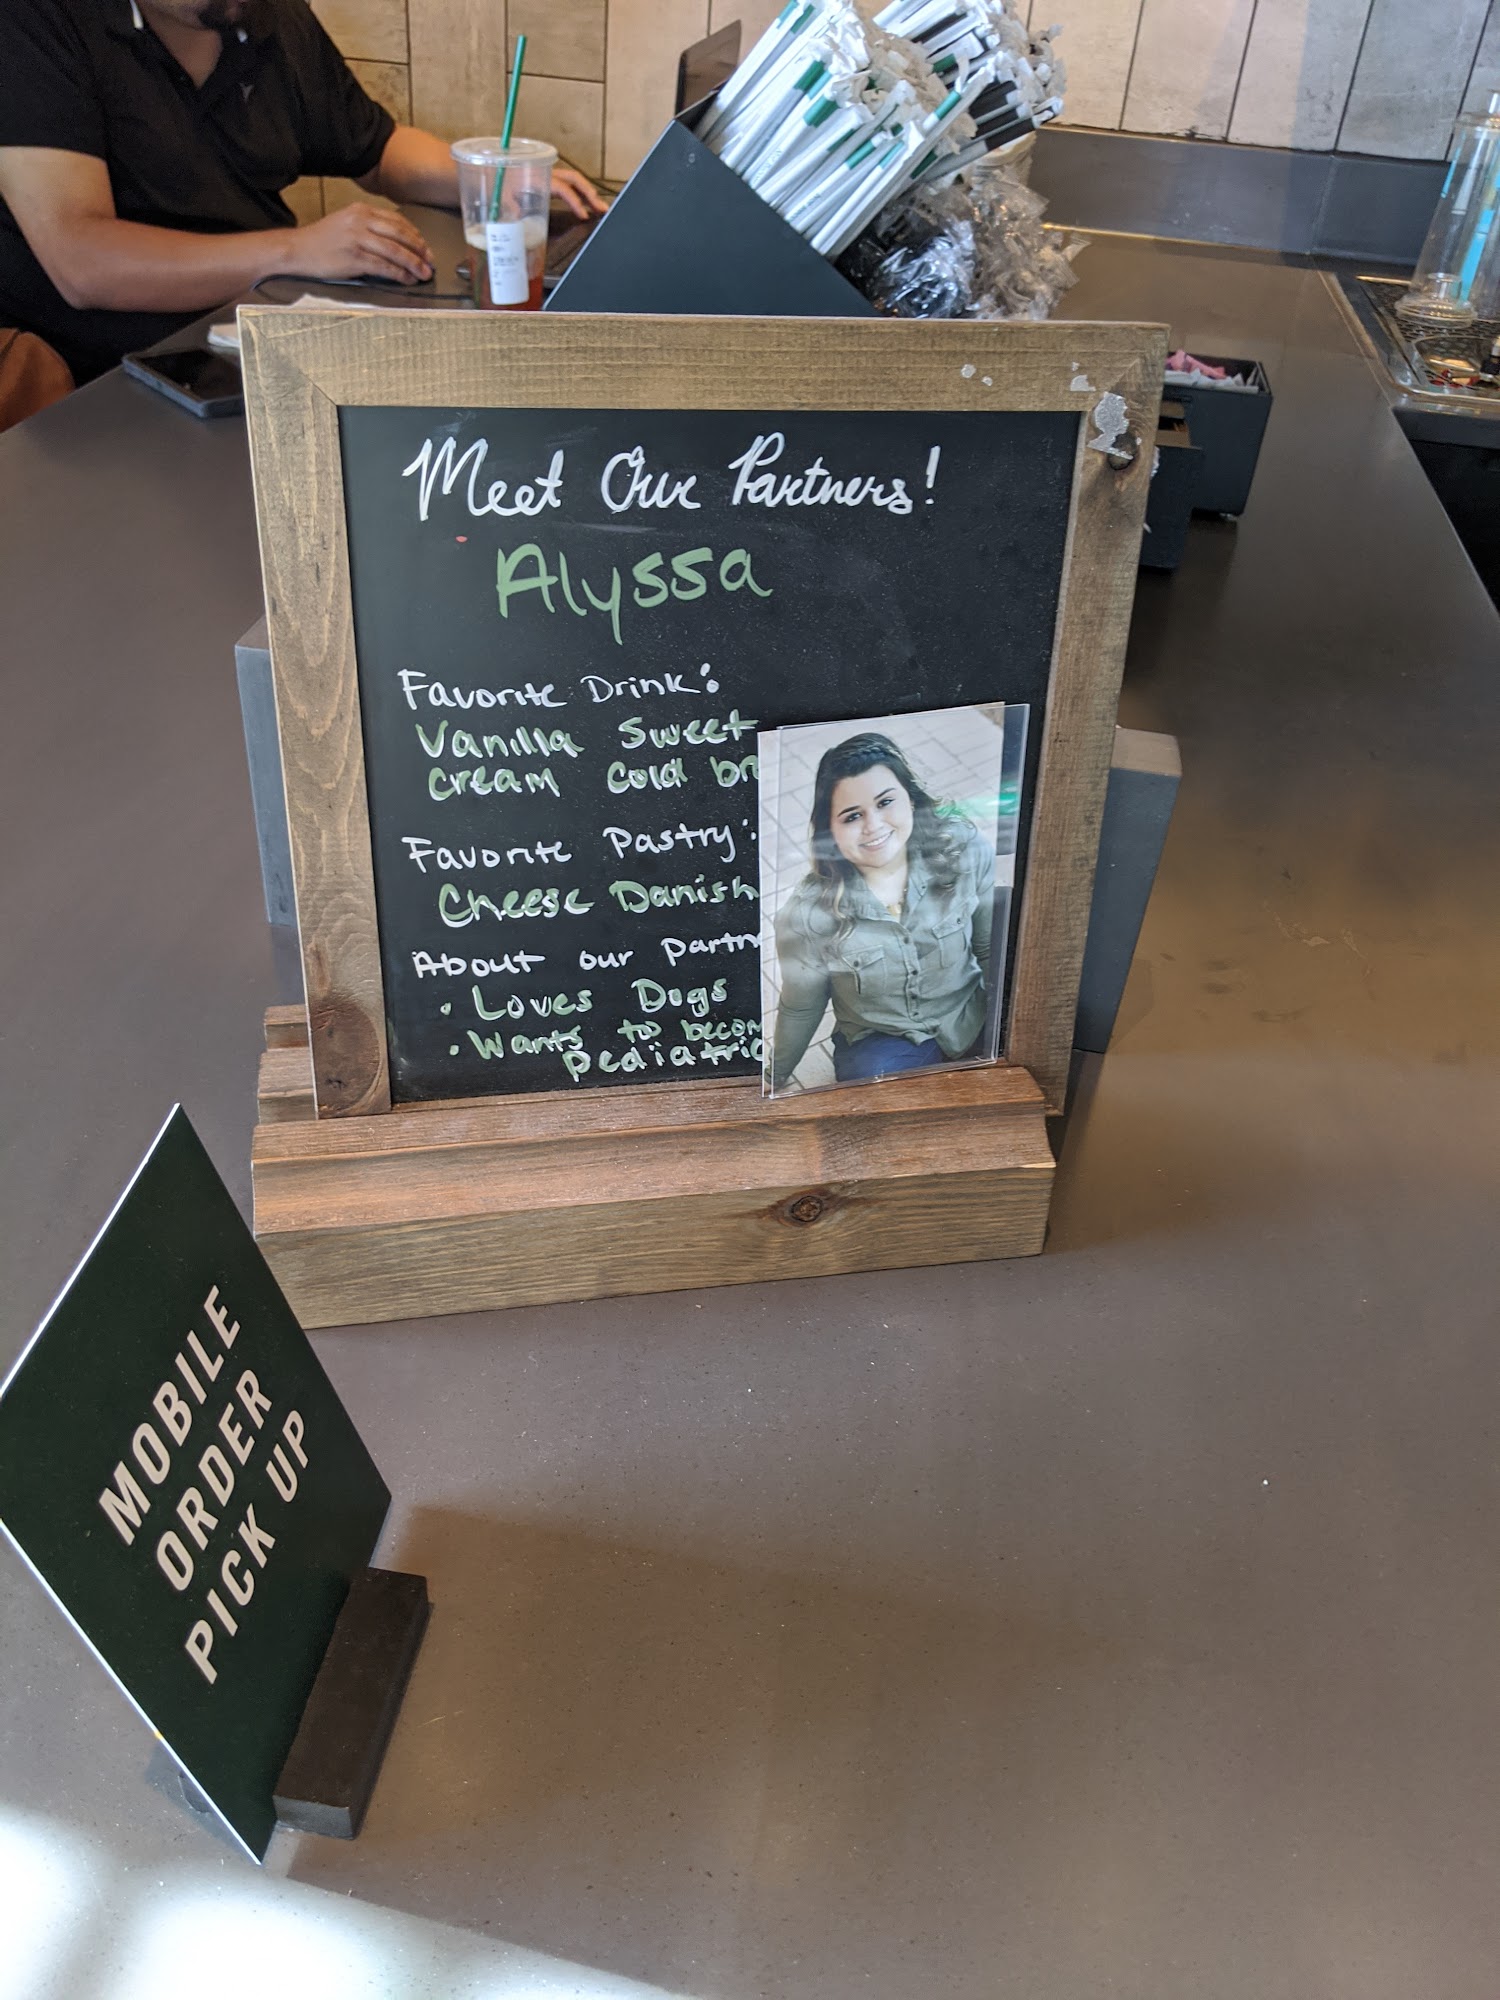 Meet Our Partners!
Alyssa
Favorite Drink:
Vanilla Sweet
cream cold br
Favorite Pastry:
Cheese Danish
About our partn
• Loves Dogs
• Wants to becom
pediatric
MOBILE
ORDER
PICK UP